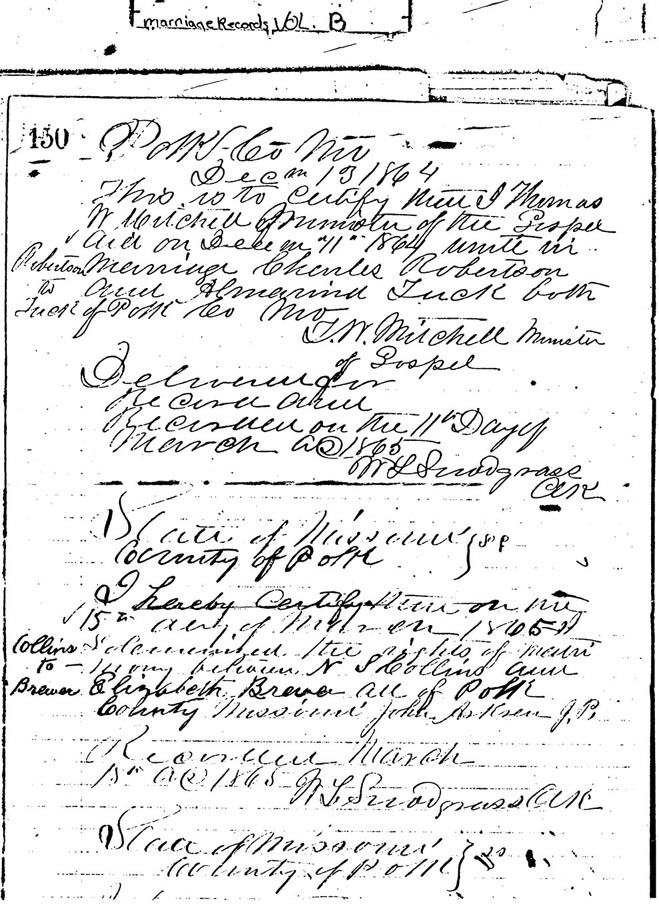 Marriage Records VOL. B
150
Polk Co Mo
Decm 13 1864
This is to Certify that I Thomas
W Mitchell Minister of the Gospel
did on Decem "11" 1864 unite in
Robertson
to
Tuck
Marriage Charles Robertson
and Almarind Tuck both
of Polk Co Mo
T. W. Mitchell Minister
of Gospel
Delivered for
Record and
Recorded on the 11th Day of
March AD 1865
W L Snodgrass
State of Missouri
County of Polk
I hereby Certify that on the
15th day of March 1865 I
Collins
to
Brewer
Solemnized the rights of matri
mony between N S Collins and
Elizabeth Brewer all of Polk
County Missouri John J.P.
Recorded March
15th AD 1865
W L Snodgrass
State of Missouri
County of Polk